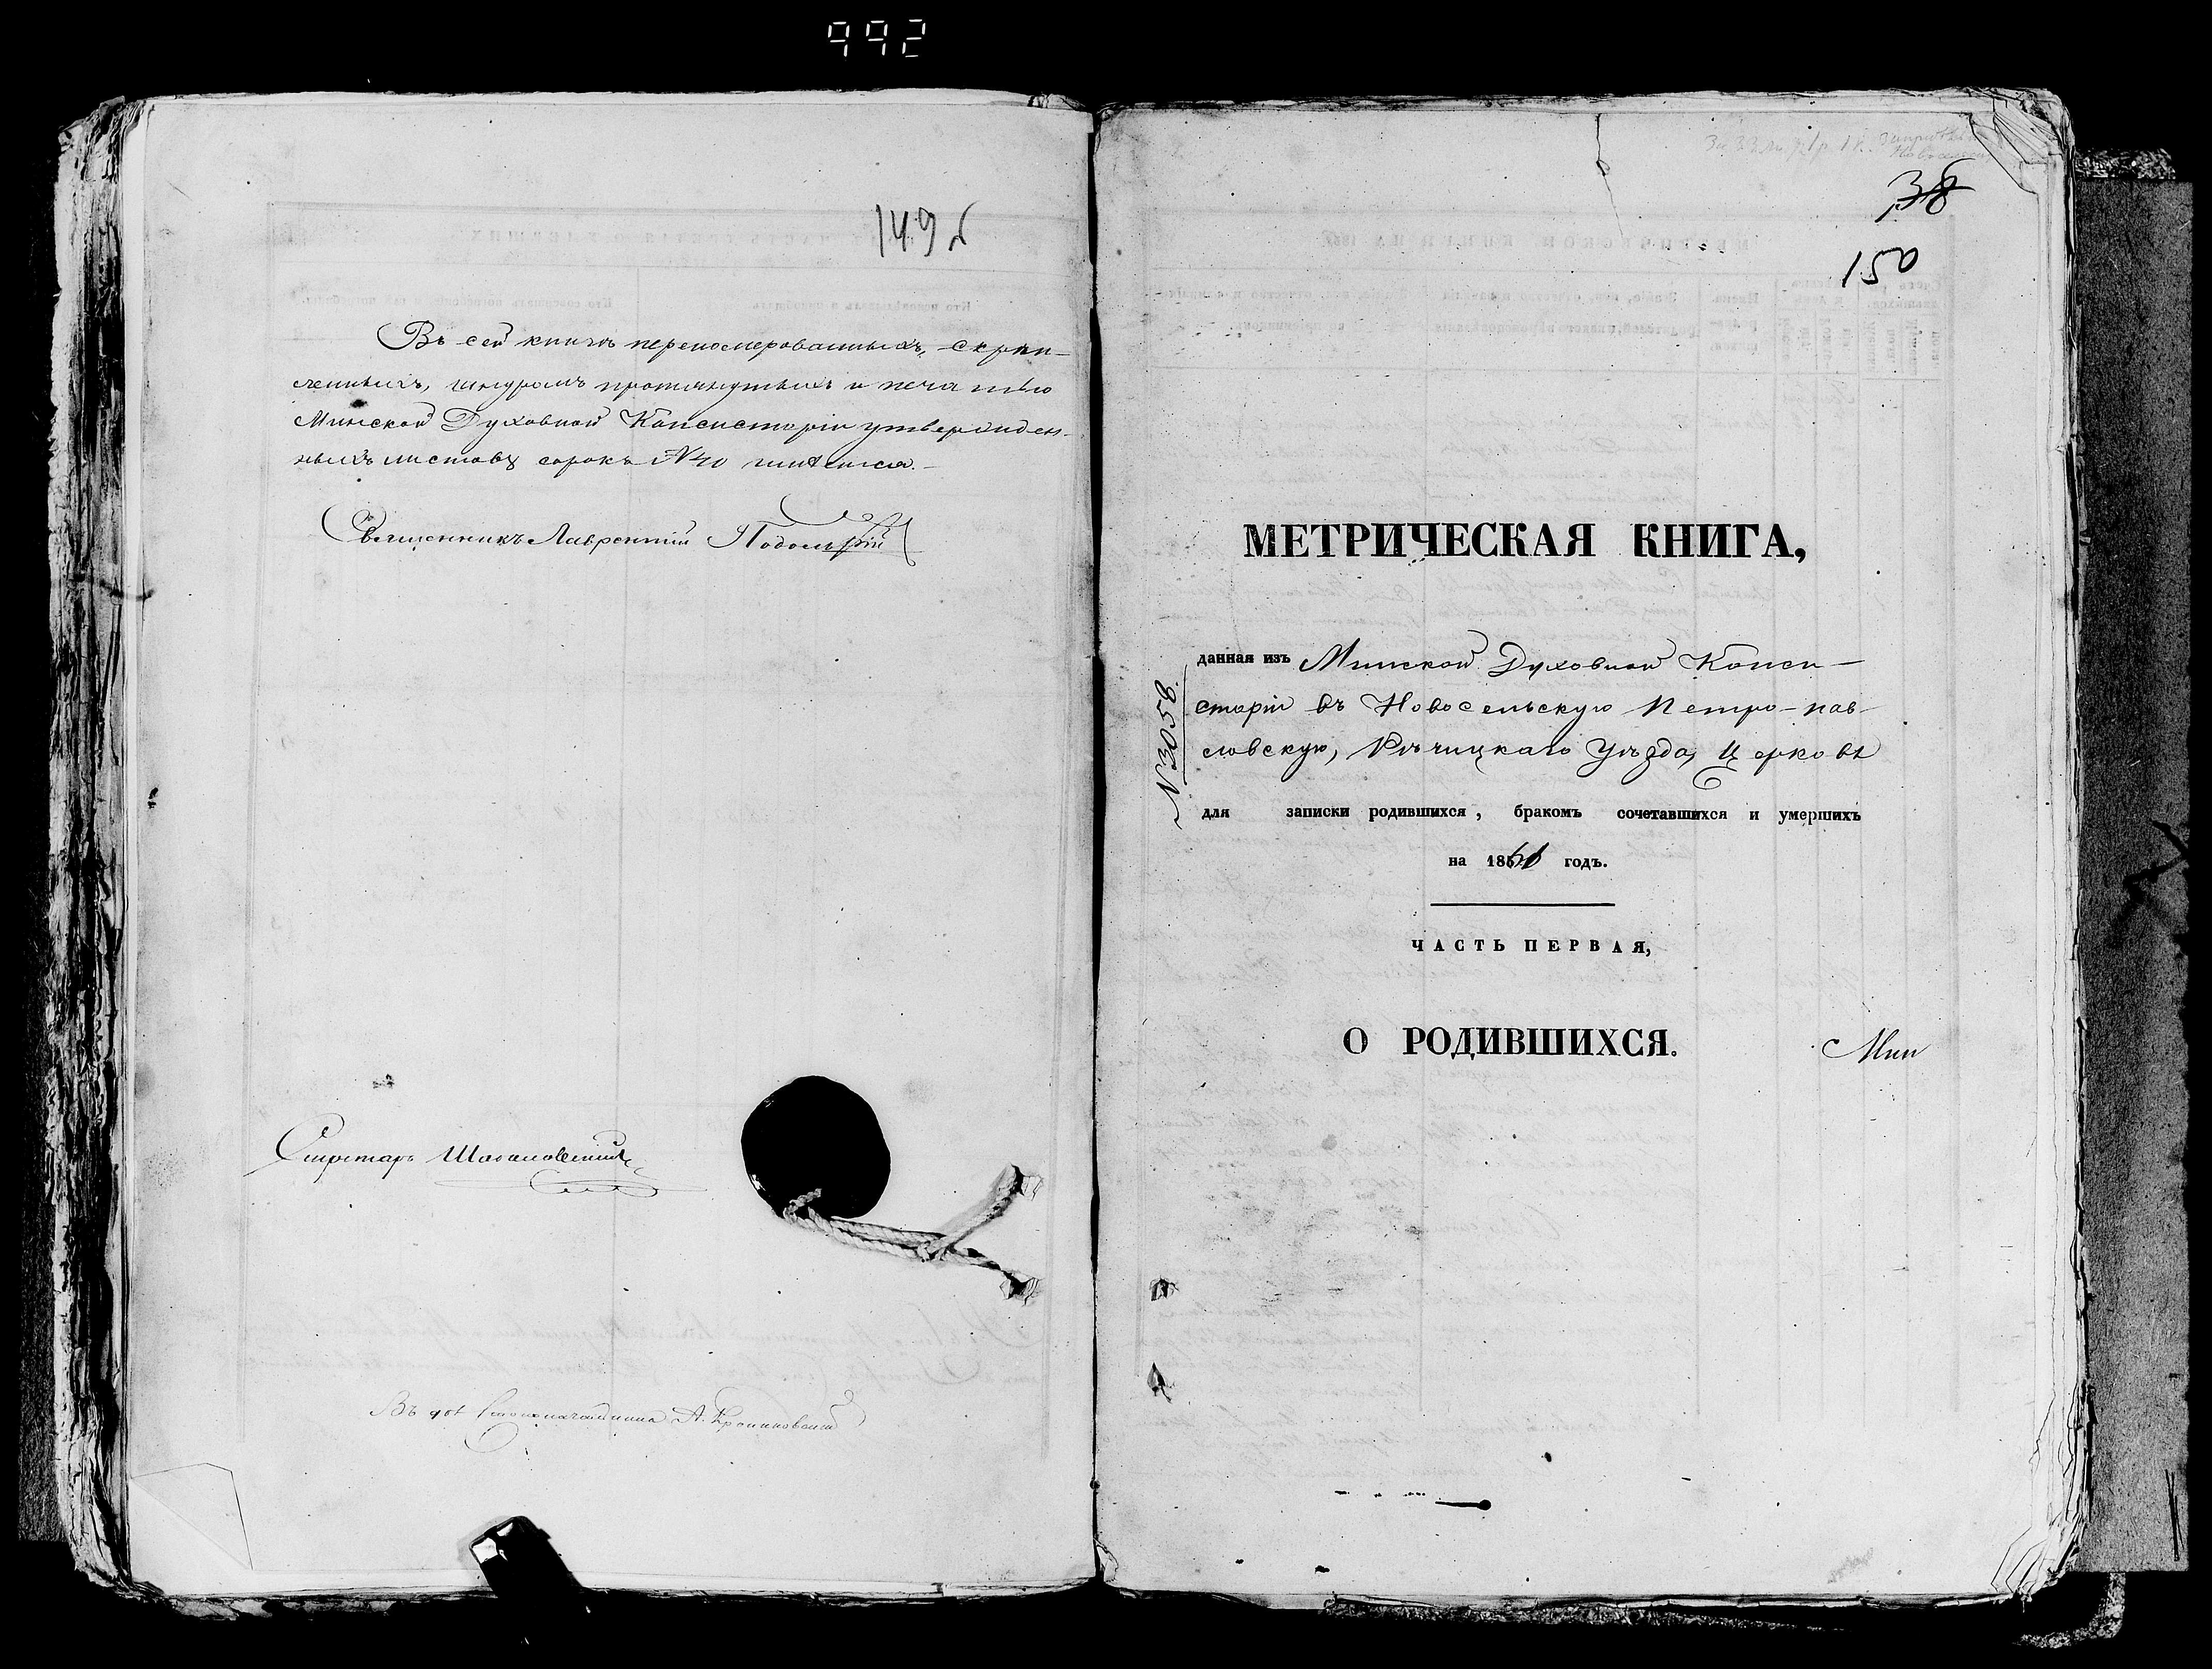 992
149б
Въ сей книгѣ перенумерованныхъ, скрѣп-
ленныхъ, шнуромъ протянутыхъ и печатью
Минской Духовной Консисторіи утвержден-
ныхъ листовъ сорокъ №40 имѣется.
Священникъ Лаврентій Подольскій
Секретарь
Въ дол Столоначальника А.
38
150
МЕТРИЧЕСКАЯ КНИГА,
данная изъ Минской Духовной Конси-
сторіи въ Новосельскую Петро-пав-
ловскую, Рѣчицкаго Уѣзда, Церковь
№3058.
для записки родившихся, бракомъ сочетавшихся и умершихъ
на 1861 годъ.
ЧАСТЬ ПЕРВАЯ,
О РОДИВШИХСЯ.
Мин